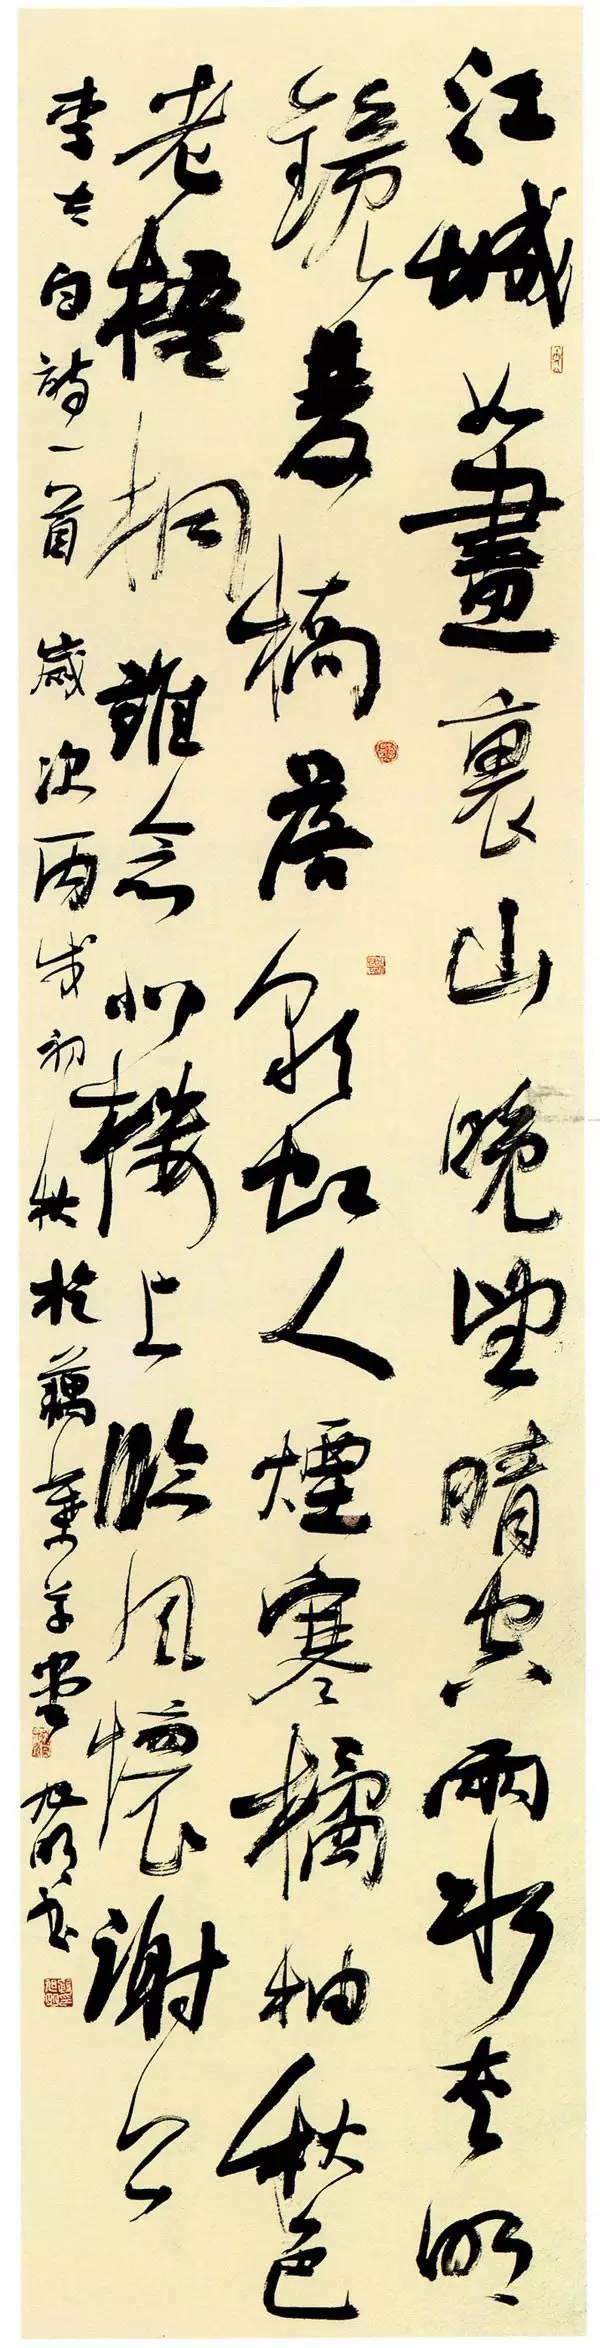 江城如畫裏山晚望晴空兩水夾明
鏡雙橋落彩虹人煙寒橘柚秋色
老梧桐誰念北樓上臨風懷謝公
李太白詩一首 歲次丙戌初秋於藕葉草堂 書